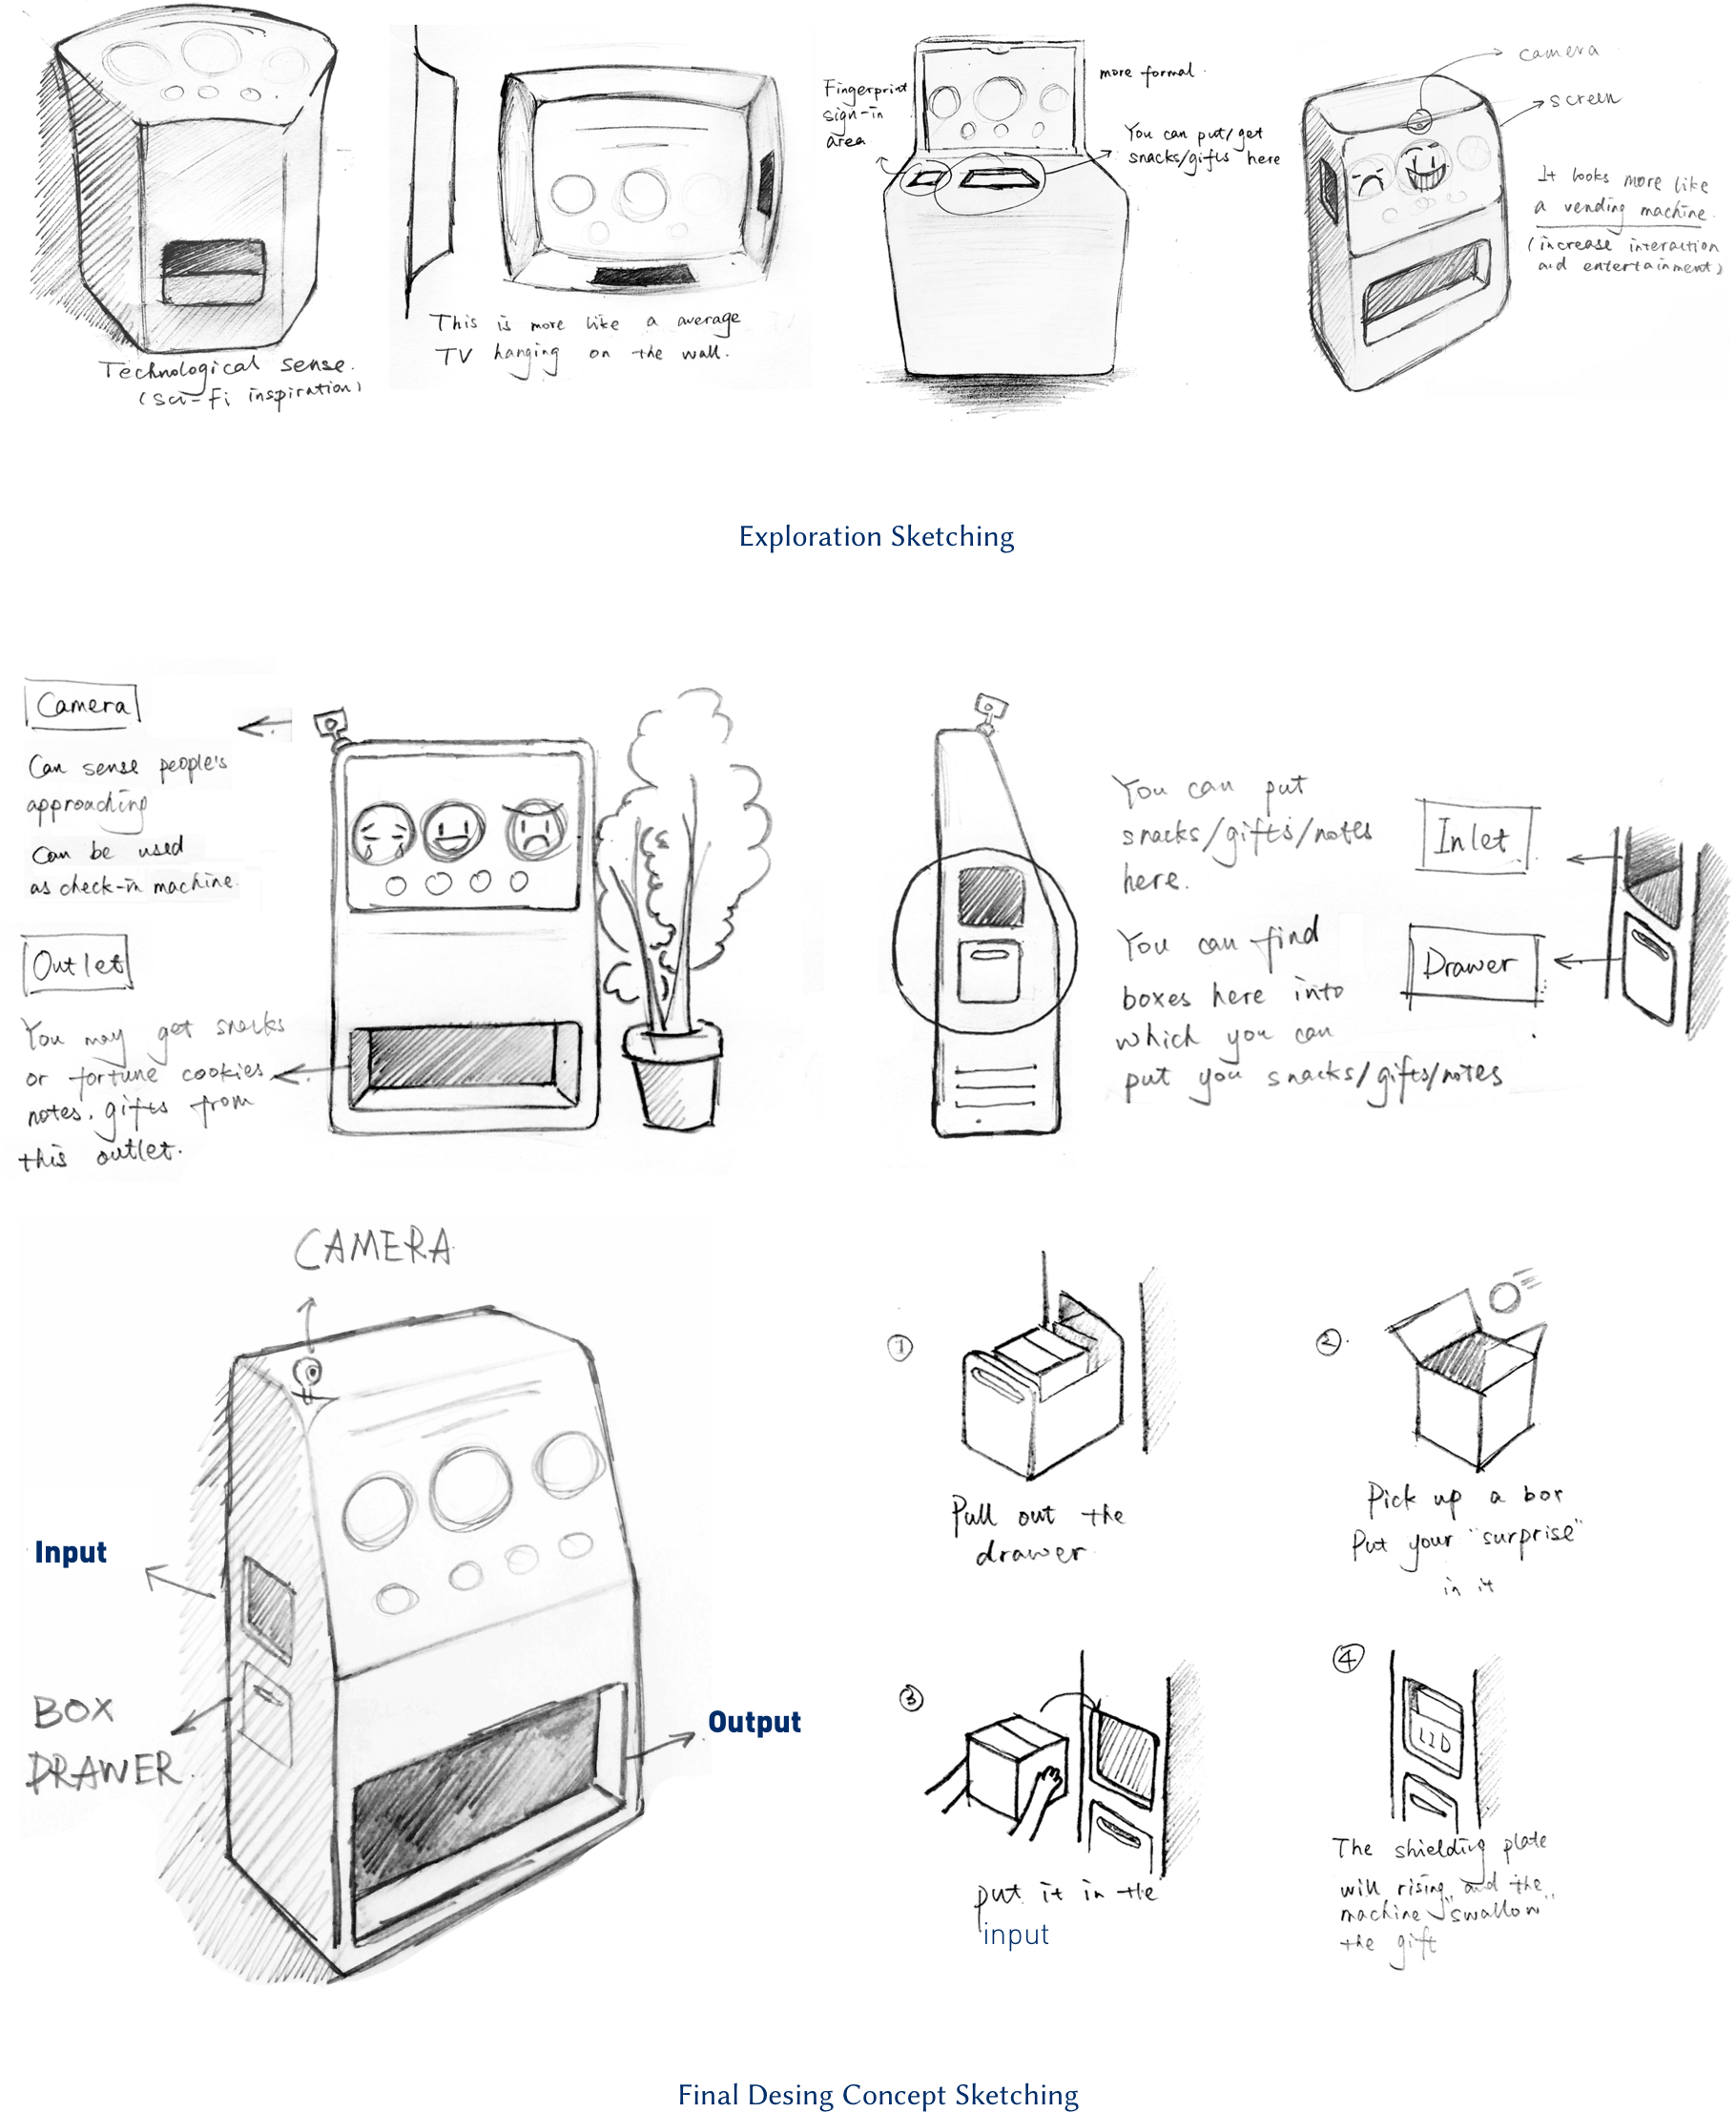 Technological sense.
(Sci-Fi inspiration)
This is more like a average
TV hanging on the wall.
Fingerprint
sign-in
area
more formal.
You can put/get
snacks/gifts here
camera
screen
It looks more like
a vending machine.
(increase interaction
and entertainment)
Exploration Sketching
Camera
Can sense people's
approaching
Can be used
as check-in machine.
Outlet
You may get snacks
or fortune cookies
notes. gifts from
this outlet.
You can put
snacks/gifts/notes
here.
You can find
boxes here into
which you can
put you snacks/gifts/notes
Inlet
Drawer
CAMERA
Input
BOX
DRAWER
Output
①
Pull out the
drawer
②.
Pick up a box
Put your "surprise"
in it
③
put it in the
input
④
LID
The shielding plate
will rising and the
machine "swallow"
the gift
Final Desing Concept Sketching